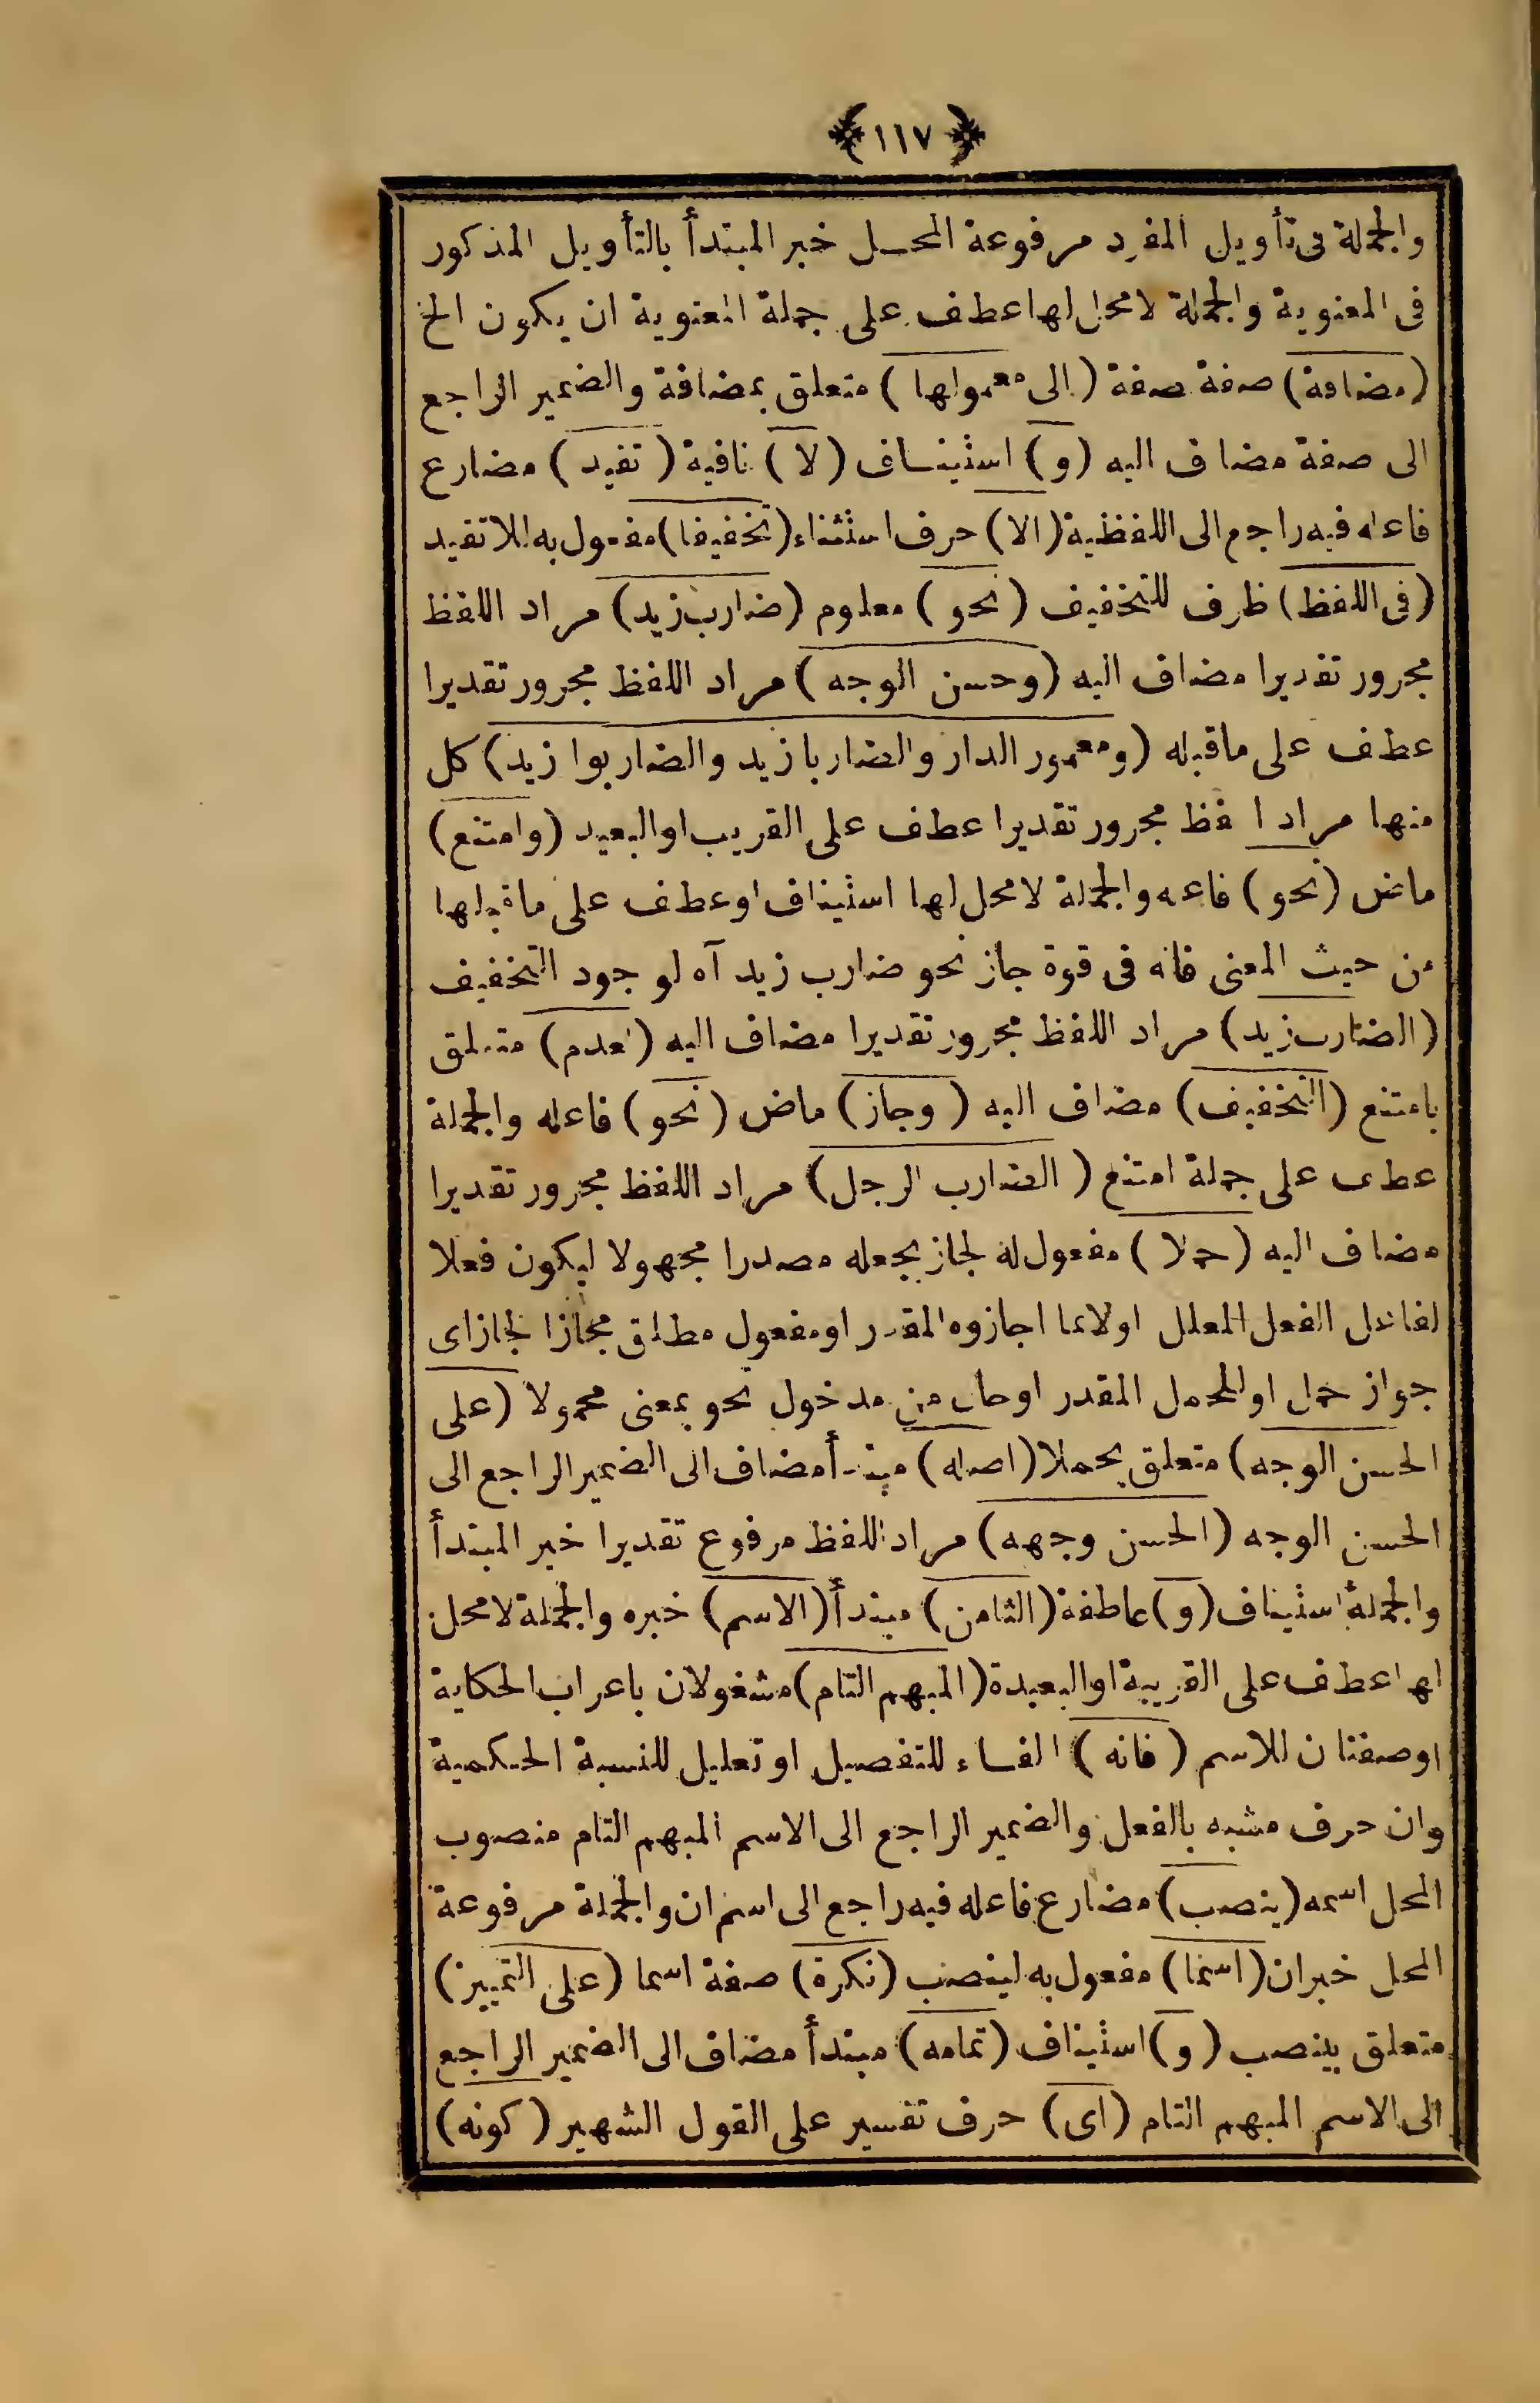 ﴿١١٧﴾
والجملة فى تأويل المفرد مرفوعة المحل خبر المبتدأ بالتأويل المذكور
فى المعنوية والجملة لامحل لها عطف على جملة المعنوية ان يكون الخ
(مضافة) صفة صفة (الى معمولها) متعلق بمضافة والضمير الراجع
الى صفة مضاف اليه (و) استيناف (لا) نافية (تفيد) مضارع
فاعله فيه راجع الى اللفظية (الا) حرف استثناء (تخفيفا) مفعول به للاتفيد
(فى اللفظ) ظرف للتخفيف (نحو) معلوم (ضارب زيد) مراد اللفظ
مجرور تقديرا مضاف اليه (وحسن الوجه) مراد اللفظ مجرور تقديرا
عطف على ماقبله (ومعمور الدار والضاربا زيد والضاربوا زيد) كل
منها مراد ا فظ مجرور تقديرا عطف على القريب او البعيد (وامتنع)
ماض (نحو) فاعه والجملة لامحل لها استيناف او عطف على ماقبلها
من حيث المعنى فانه فى قوة جاز نحو ضارب زيد آه لوجود التخفيف
(الضارب زيد) مراد اللفظ مجرور تقديرا مضاف اليه (لعدم) متعلق
بامتنع (التخفيف) مضاف اليه (وجاز) ماض (نحو) فاعله والجملة
عطف على جملة امتنع (الضارب الرجل) مراد اللفظ مجرور تقديرا
مضاف اليه (حملا) مفعول له لجاز بجعله مصدرا مجهولا ليكون فعلا
لفاعل الفعل المعلل اولاعا اجازوه المقدر او مفعول مطلق مجازا لجاز اى
جواز حمل او المحمل المقدر او حال من مدخول نحو بمعنى محمولا (على
الحسن الوجه) متعلق بحملا (اصله) مبتدأ مضاف الى الضمير الراجع الى
الحسن الوجه (الحسن وجهه) مراد اللفظ مرفوع تقديرا خبر المبتدأ
والجملة استيناف (و) عاطفة (الثامن) مبتدأ (الاسم) خبره والجملة لامحل
لها عطف على القريبة او البعيدة (المبهم التام) مشغولان باعراب الحكاية
اوصفتان للاسم (فانه) الفاء للتفصيل او تعليل للنسبة الحكمية
وان حرف مشبه بالفعل والضمير الراجع الى الاسم المبهم التام منصوب
المحل اسمه (ينصب) مضارع فاعله فيه راجع الى اسم ان والجملة مرفوعة
المحل خبران (اسما) مفعول به لينصب (نكرة) صفة اسما (على التمييز)
متعلق بينصب (و) استيناف (تمامه) مبتدأ مضاف الى الضمير الراجع
الى الاسم المبهم التام (اى) حرف تفسير على القول الشهير (كونه)